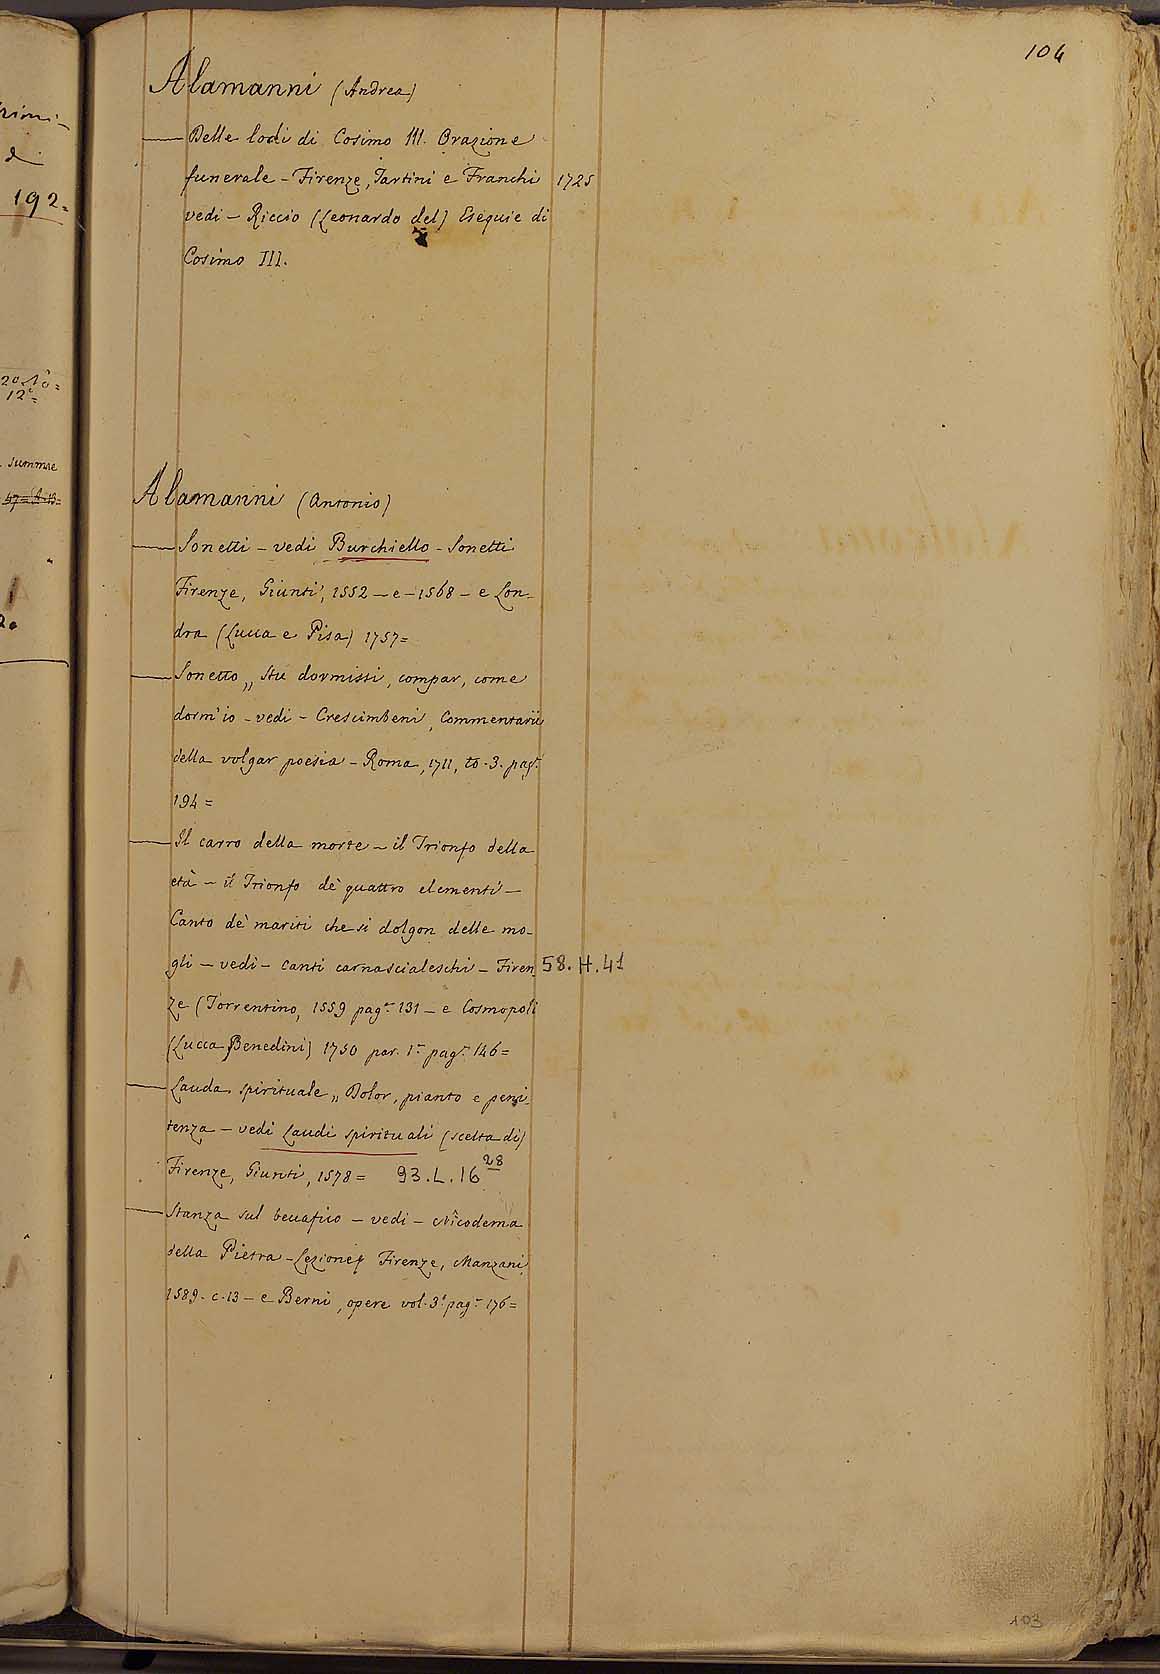 104
Alamanni (Andrea)
Delle lodi di Cosimo III. Orazione
funerale - Firenze, Tartini e Franchi 1725
vedi - Riccio (Leonardo del) Esequie di
Cosimo III.
Alamanni (Antonio)
Sonetti - vedi Burchiello - Sonetti
Firenze, Giunti, 1552 - e - 1568 - e Lon-
dra (Lucca e Pisa) 1757=
Sonetto „ Stu dormissi, compar, come
dorm'io - vedi - Crescimbeni, Commentarii
della volgar poesia - Roma, 1711, to. 3. pag.
194=
Il carro della morte - il Trionfo della
età - il Trionfo de' quattro elementi -
Canto de' mariti che si dolgon delle mo-
gli - vedi - Canti carnascialeschi - Firen 58. H. 41
ze (Torrentino, 1559 pag. 131 - e Cosmopoli
(Lucca, Benedini) 1750 par. 1. pag. 146=
Lauda spirituale „ Dolor, pianto e peni-
tenza - vedi Laudi spirituali (scelta di)
Firenze, Giunti, 1578= 93. L. 16 28
Stanza sul beccafico - vedi - Nicodemo
della Pietra - Lezione, Firenze, Manzani,
1589. c. 13 - e Berni, opere vol. 3. pag. 176=
103
192.
summae